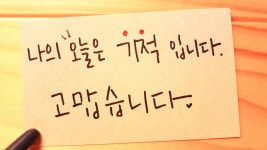 나의 "오늘은 기적 입니다.
고맙습니다